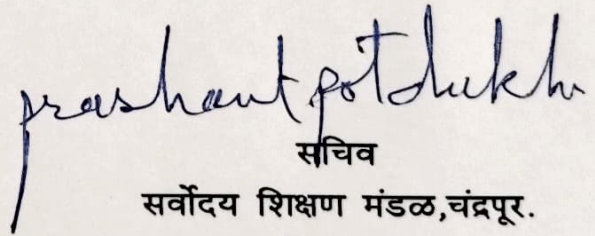 prashant potdukhe
सचिव
सर्वोदय शिक्षण मंडळ,चंद्रपूर.